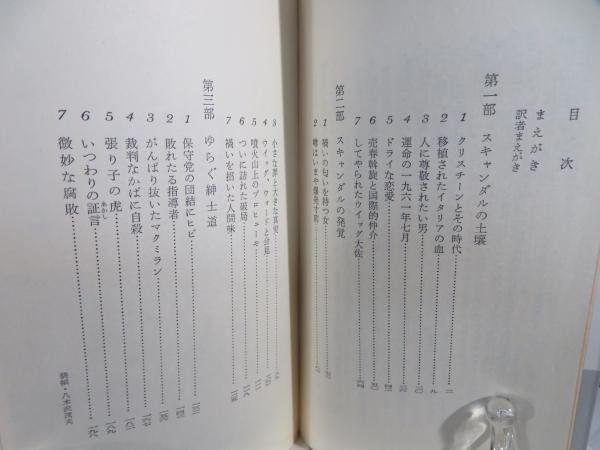 目次
まえがき
訳者まえがき
第一部 スキャンダルの土壌
1 クリスチーンとその時代
2 移植されたイタリアの血
3 人に尊敬されたい男
4 運命の一九六一年七月
5 ドライな恋愛
6 売春斡旋と国際的仲介
7 してやられたウイッグ大佐
第二部 スキャンダルの発覚
1 禍いの匂いを持つ女
2 噂はいまや爆発寸前
3 小さな罪と大きな真実
4 ウイッグ、ウォードと会見
5 噴火山上のプロヒューモ
6 ついに訪れた破局
7 禍いを招いた人間味
第三部 ゆらぐ紳士道
1 保守党の団結にヒビ
2 敗れたる指導者
3 がんばり抜いたマクミラン
4 裁判なかばに自殺
5 張り子の虎
6 いつわりの証言
あかし
7 微妙な腐敗
装幀・八木沢茂夫